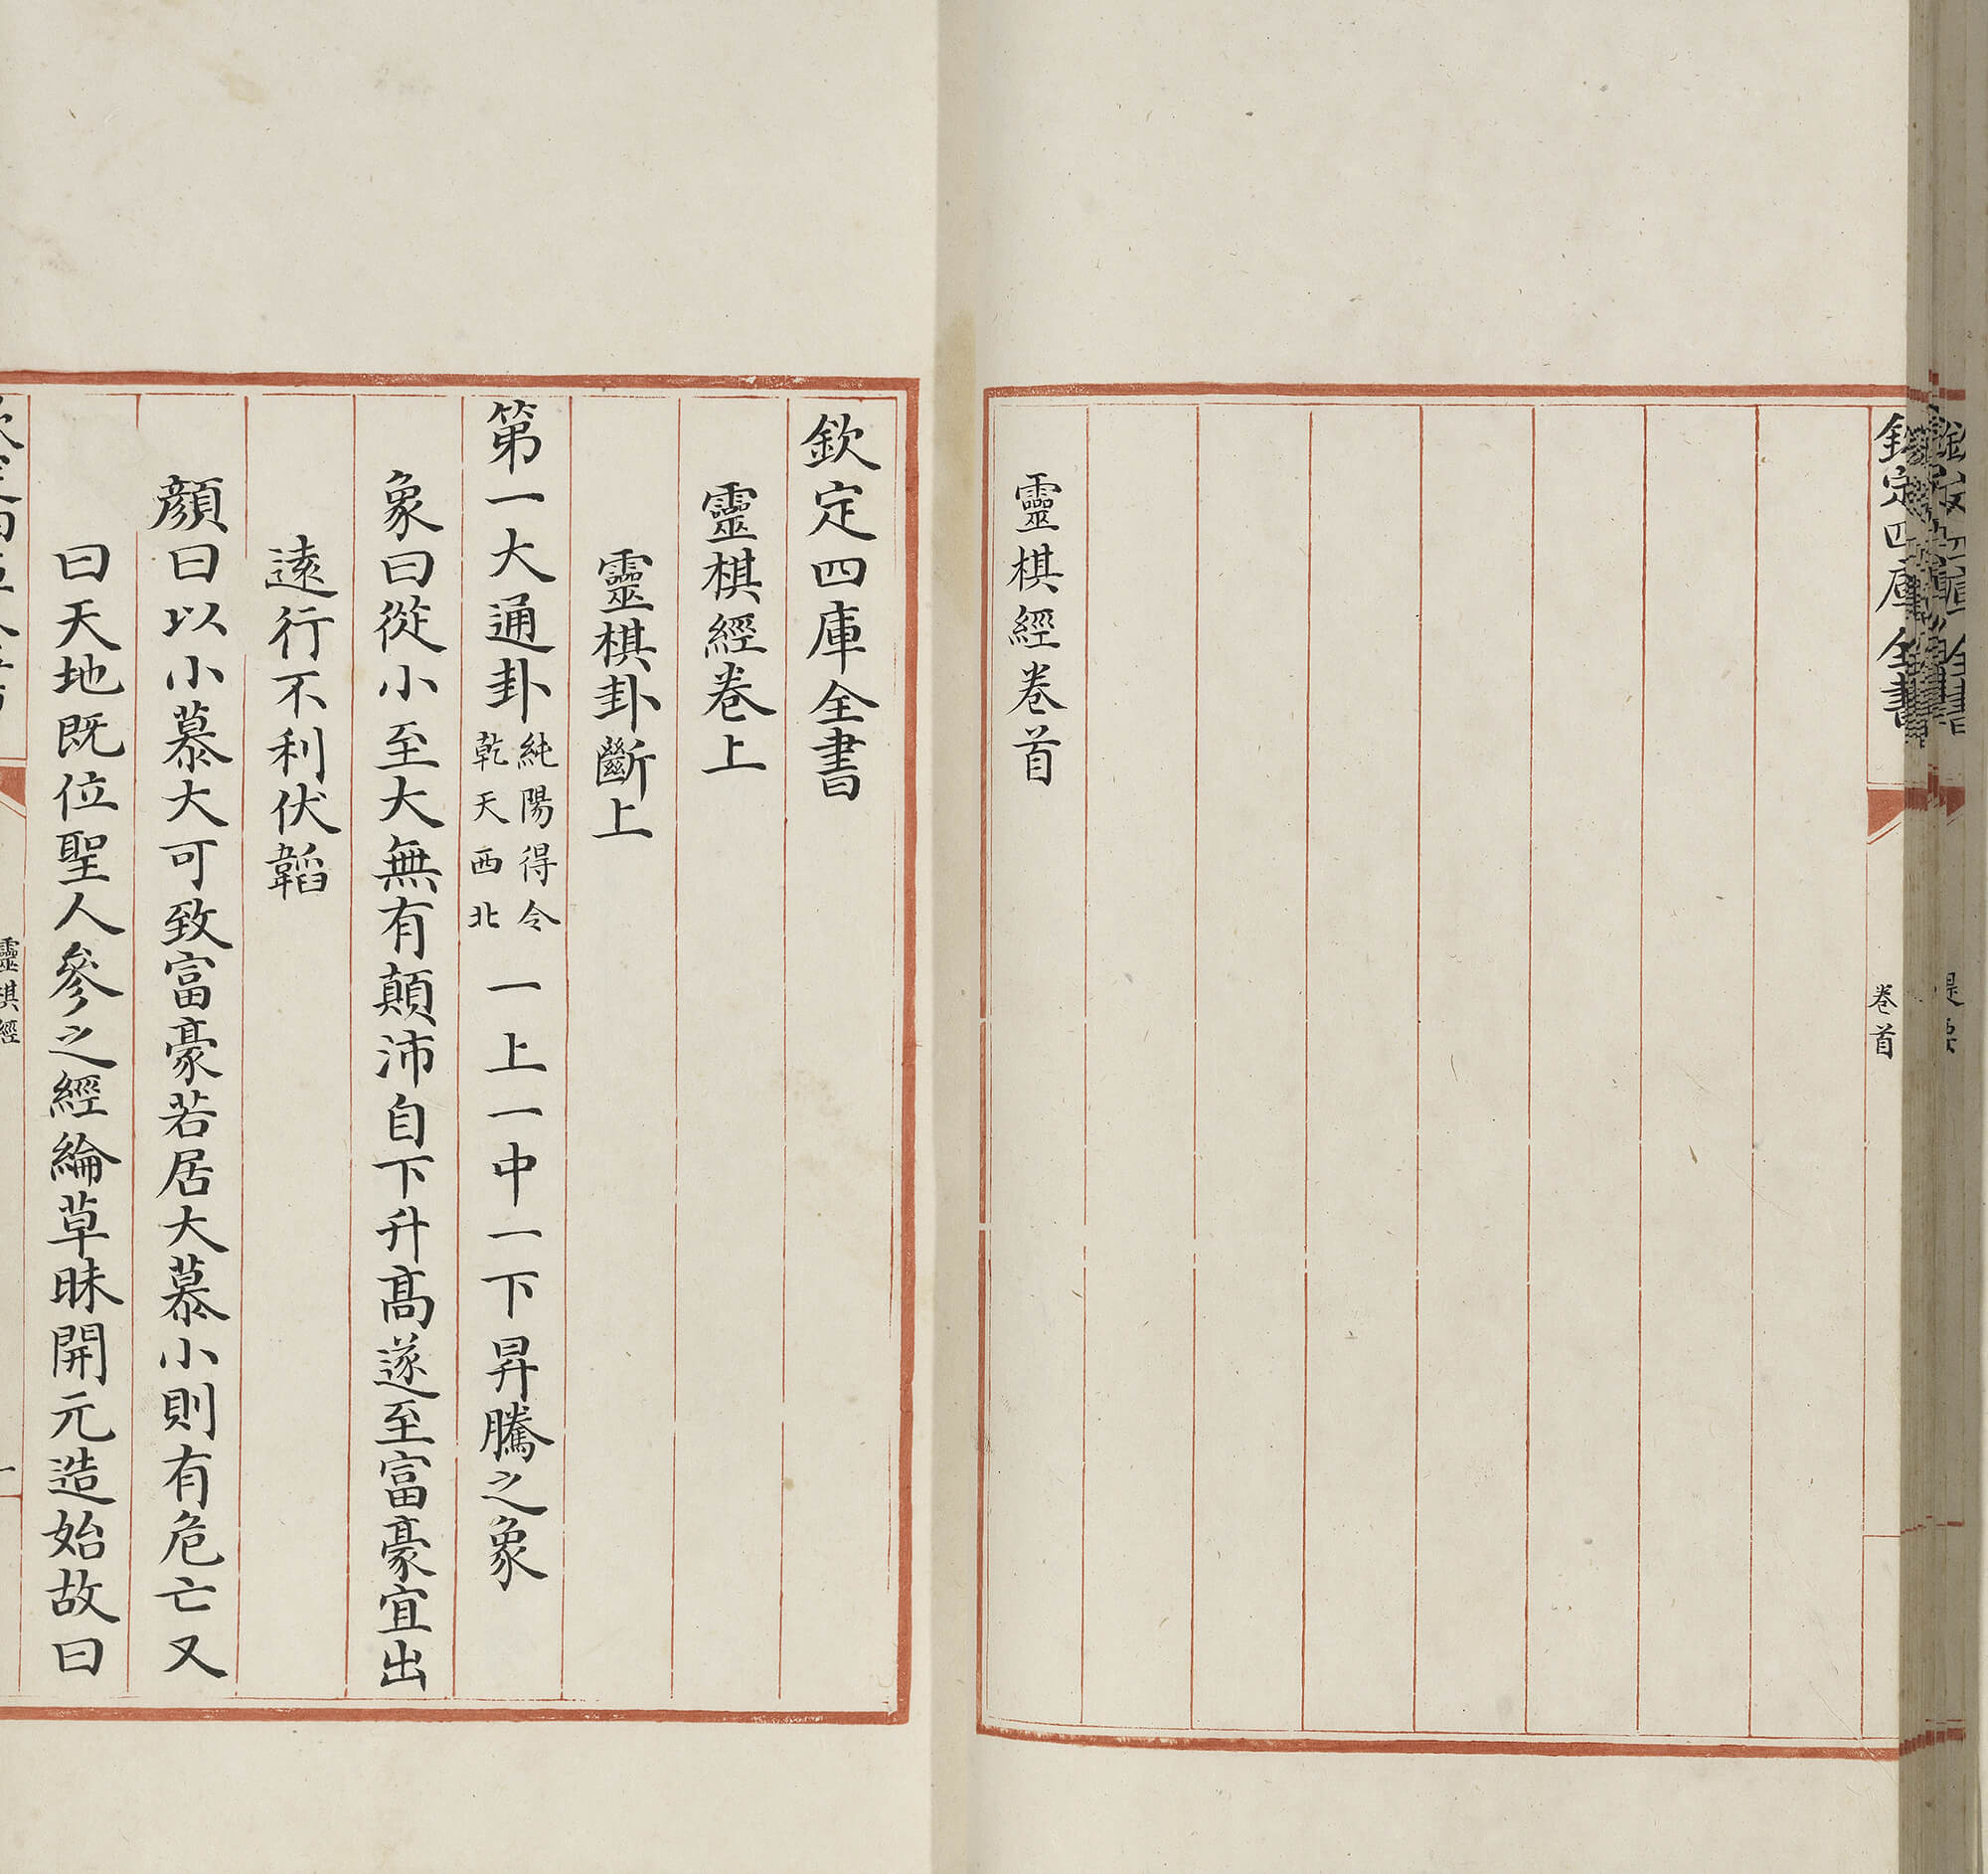 欽定四庫全書
卷首
靈棋經卷首
欽定四庫全書
靈棋經卷上
靈棋卦斷上
第一大通卦純陽得令乾天西北 一上一中一下昇騰之象
象曰從小至大無有顛沛自下升髙遂至富豪宜出
逺行不利伏韜
顔曰以小慕大可致富豪若居大慕小則有危亡又
曰天地既位聖人參之經綸草昧開元造始故曰
靈棋經
一